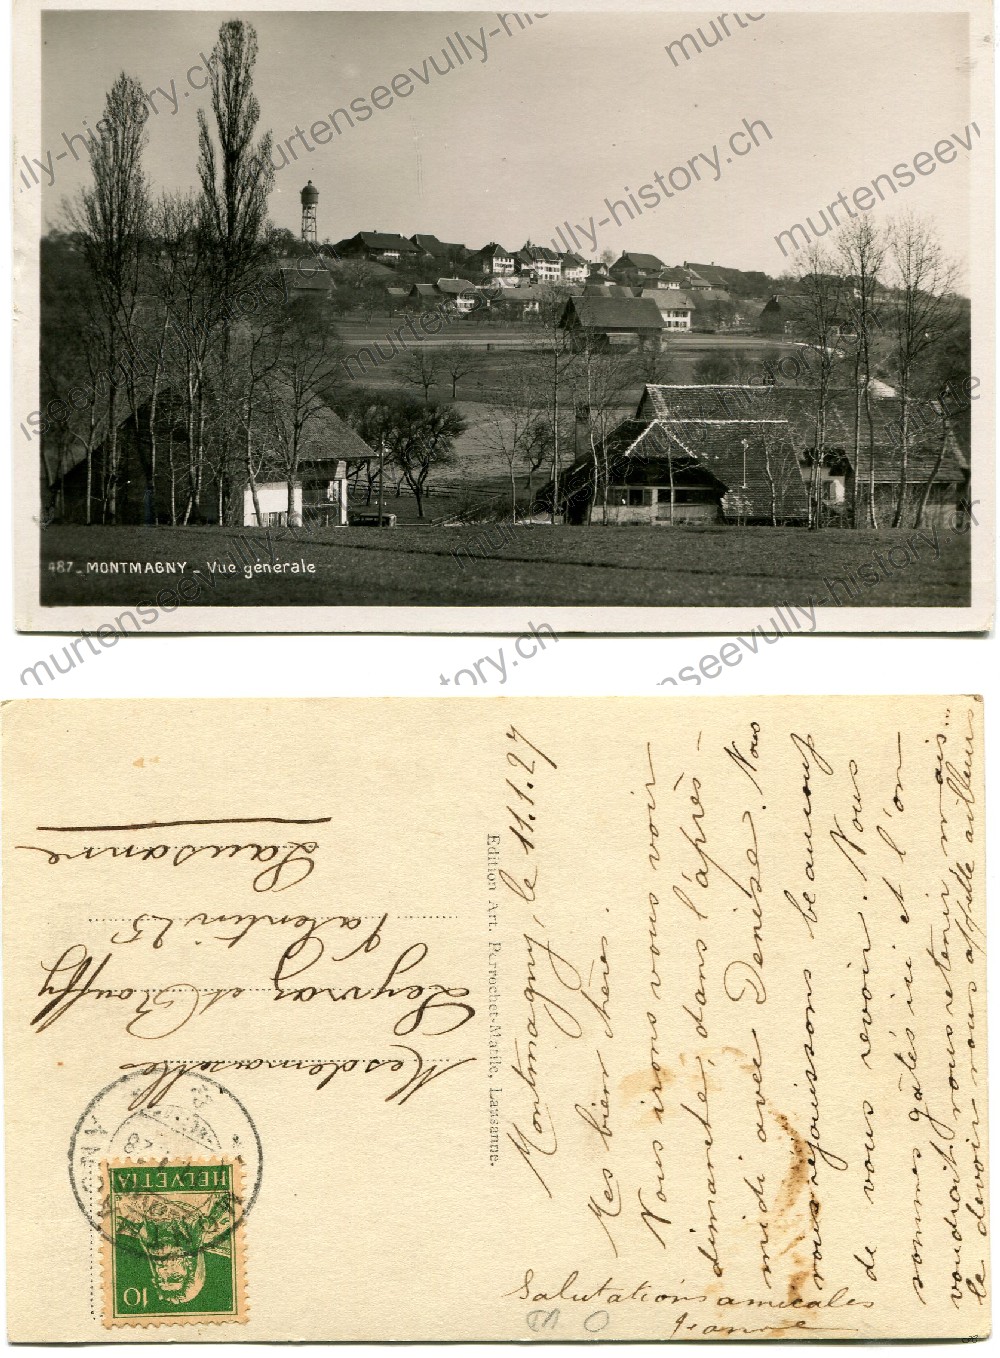 murtenseevully-history.ch
487_ MONTMAGNY _ Vue générale
Montmagny, le 11.1.27
Mes bien chères.
Nous irons vous voir
dimanche, dans l'après-
midi avec Denise. Nous
nous réjouissons beaucoup
de vous revoir. Nous
sommes gâtés ici et l'on
voudrait vous retenir, mais...
le devoir nous appelle ailleurs
Salutations amicales
Edition Art. Perrochet-Matile, Lausanne.
Mesdemoiselles
Leyvraz et
Valentin 25
Lausanne
HELVETIA
10